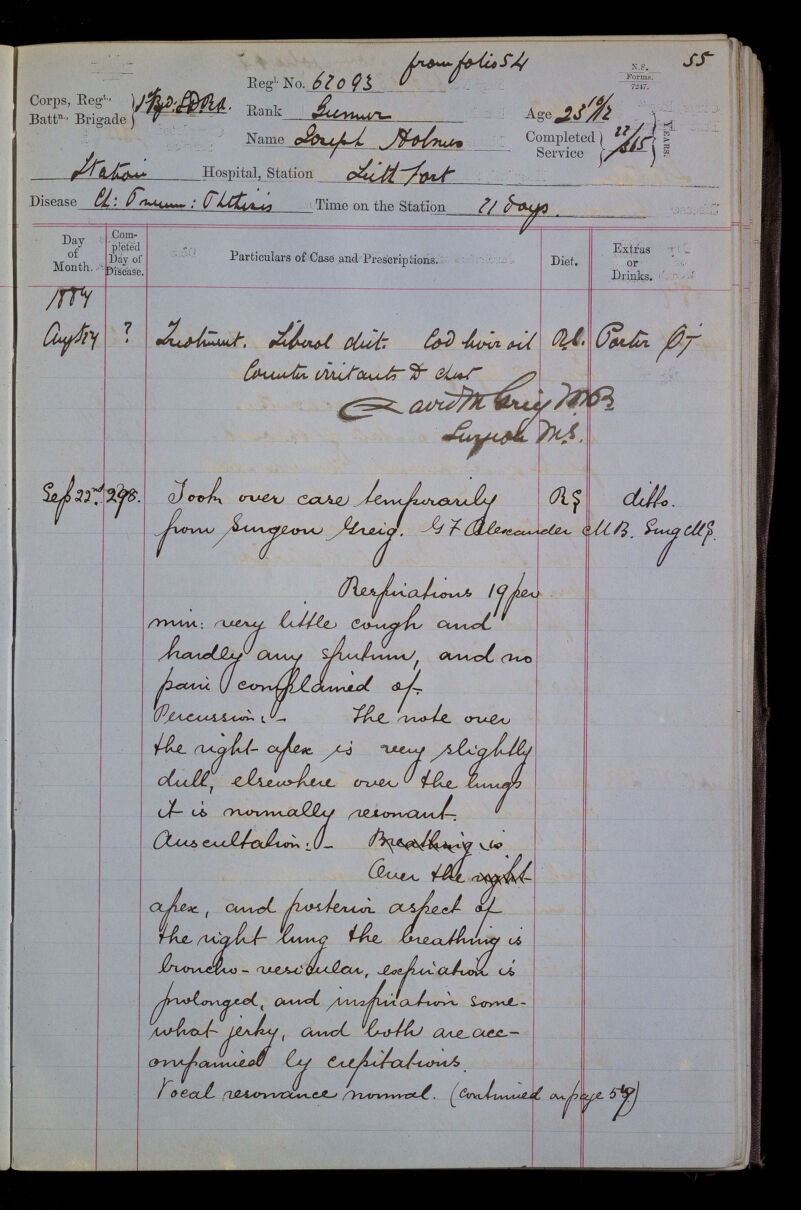 from folio 54
55
N.S.
Forms.
7247.
Regtl. No. 62093
Corps, Regtl.,
Battn., Brigade
Rank Gunner
Age 23 10/12
Name Joseph Holmes
Completed Service 22/365 YEARS.
Station Hospital, Station Leith Fort
Disease Ch: Pneum: Phthisis Time on the Station 21 days
Day of Month. Completed Day of Disease. Particulars of Case and Prescriptions. Diet. Extras or Drinks.
1887
? Treatment. Liberal diet. Cod liver oil Porter
Counter irritants to chest
David M Greig M.B
Surgeon M.S.
Sep 22nd. 298. Took over case temporarily ditto.
from Surgeon Greig. G F Alexander M.B. Surg M.S.
Respirations 19 per
min: very little cough and
hardly any sputum, and no
pain complained of.
Percussion:- The note over
the right apex is very slightly
dull, elsewhere over the lungs
it is normally resonant.
Auscultation:- Breathing is
Over the right
apex, and posterior aspect of
the right lung the breathing is
broncho-vesicular, expiration is
prolonged, and inspiration some-
what jerky, and both are acc-
ompanied by crepitations.
Vocal resonance normal. (continued on page